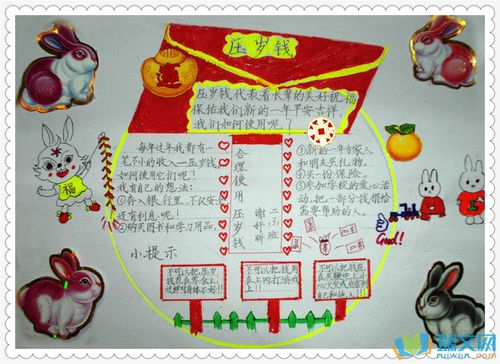 压岁钱
压岁钱代表着长辈的美好祝福
保佑我们新的一年平安吉祥。
我们如何使用呢？
每年过年我都有一
笔不小的收入—压岁钱
如何使用它们呢？
我有自己的想法：
①存入银行里，不仅安
还有利息呢！
②购买图书和学习用品。
小提示
合理使用压岁钱
二(3)班
谢妤昕
③新的一年为家人
和朋友买礼物。
④买一份保险。
⑤参加学校的爱心活
动，把一部分钱捐给
需要帮助的人。
福
Good!
不可以把压岁
钱花在零食上，
不可以把钱用
在上网打游戏
上！
不可以把钱花